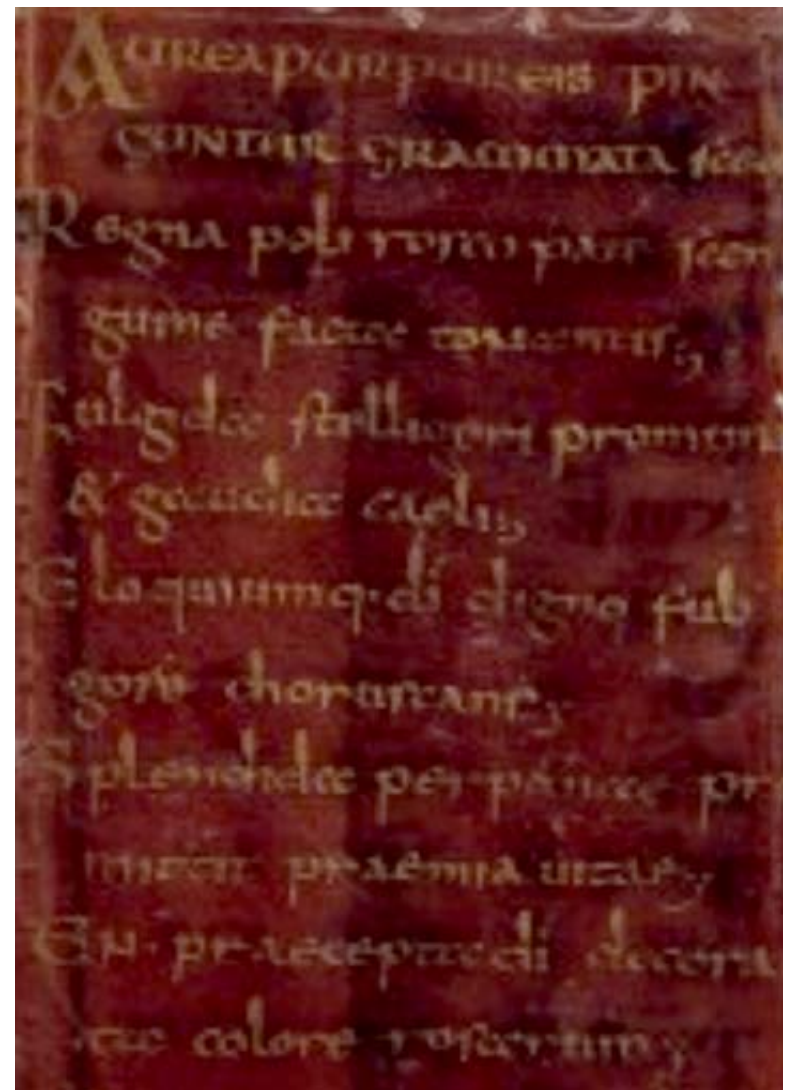 AUREA PURPUREIS PIN
GUNTUR GRAMMATA sce
Regna poli roseo pate san
guine facta tonantis;
Fulgida stelligeri promun
& gaudia caeli;
Eloquiumq· di digno ful
gore choruscans;
Splendida perpetuae pr
mittit praemia uitae;
En praecepta di decora
ta colore rosarum;